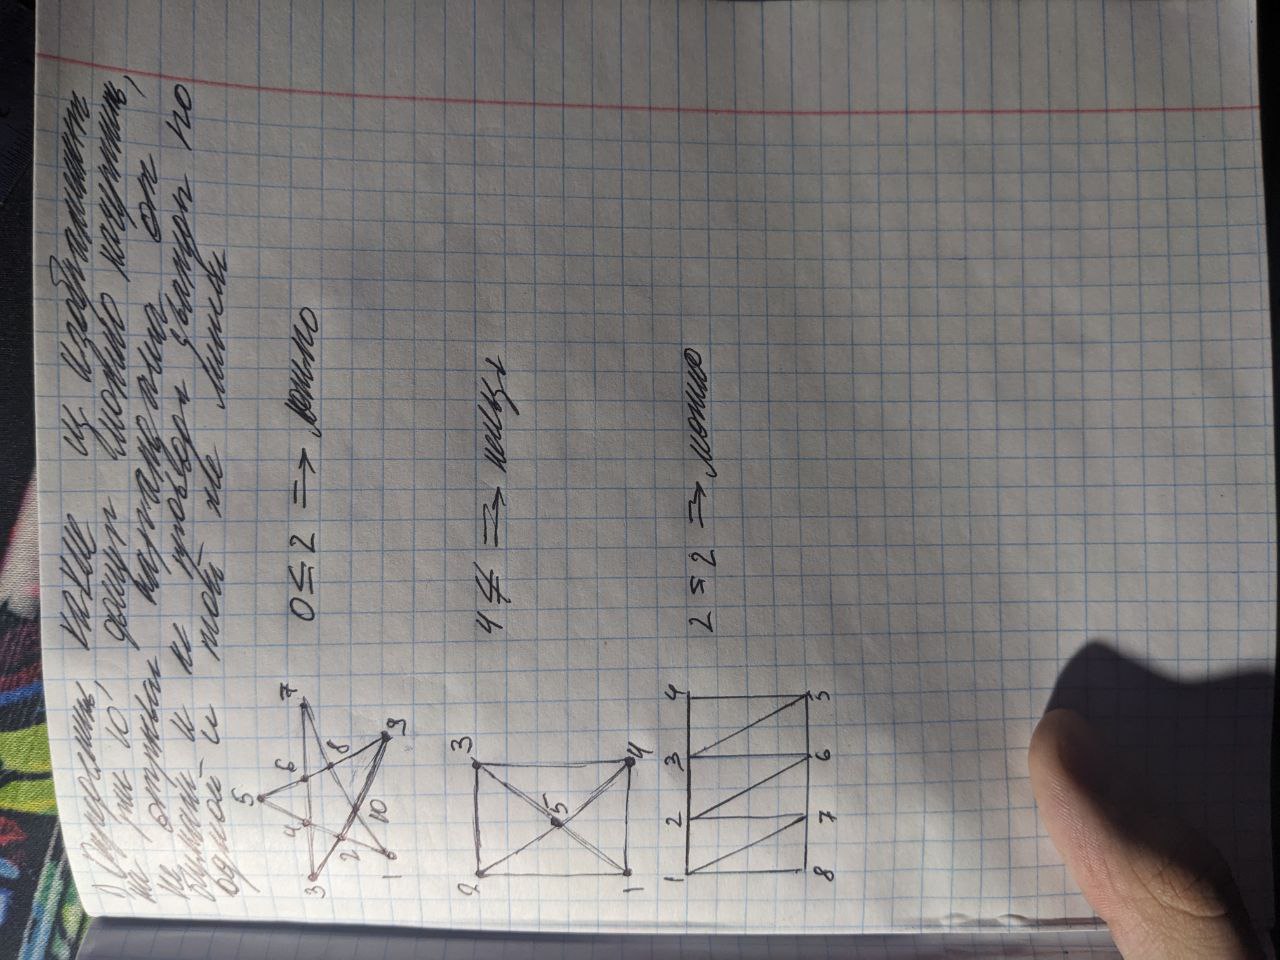 Определить, какие из изображённых
на рис 10, фигур можно начертить,
не отрывая карандаша от
бумаги и не проводя дважды по
одной и той же линии
5
3
4
6
7
2
8
10
1
9
0 ≤ 2 ⇒ можно
2
3
5
1
4
4 ≰ ⇒ нельзя
1
2
3
4
8
7
6
5
2 ≤ 2 ⇒ можно